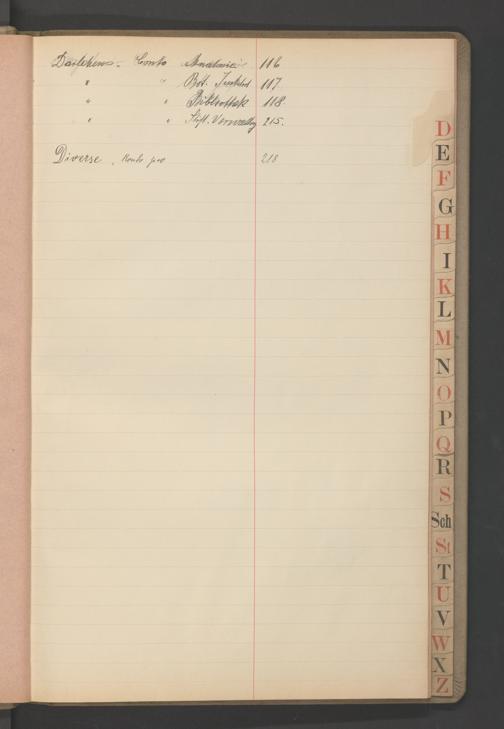 Darlehens- Conto Anatomie 116
" " Bot. Institut 117
" " Bibliothek 118
" " Stift. Verwaltg 215.
Diverse, Konto pro 218
D
E
F
G
H
I
K
L
M
N
O
P
Q
R
S
Sch
St
T
U
V
W
X
Z